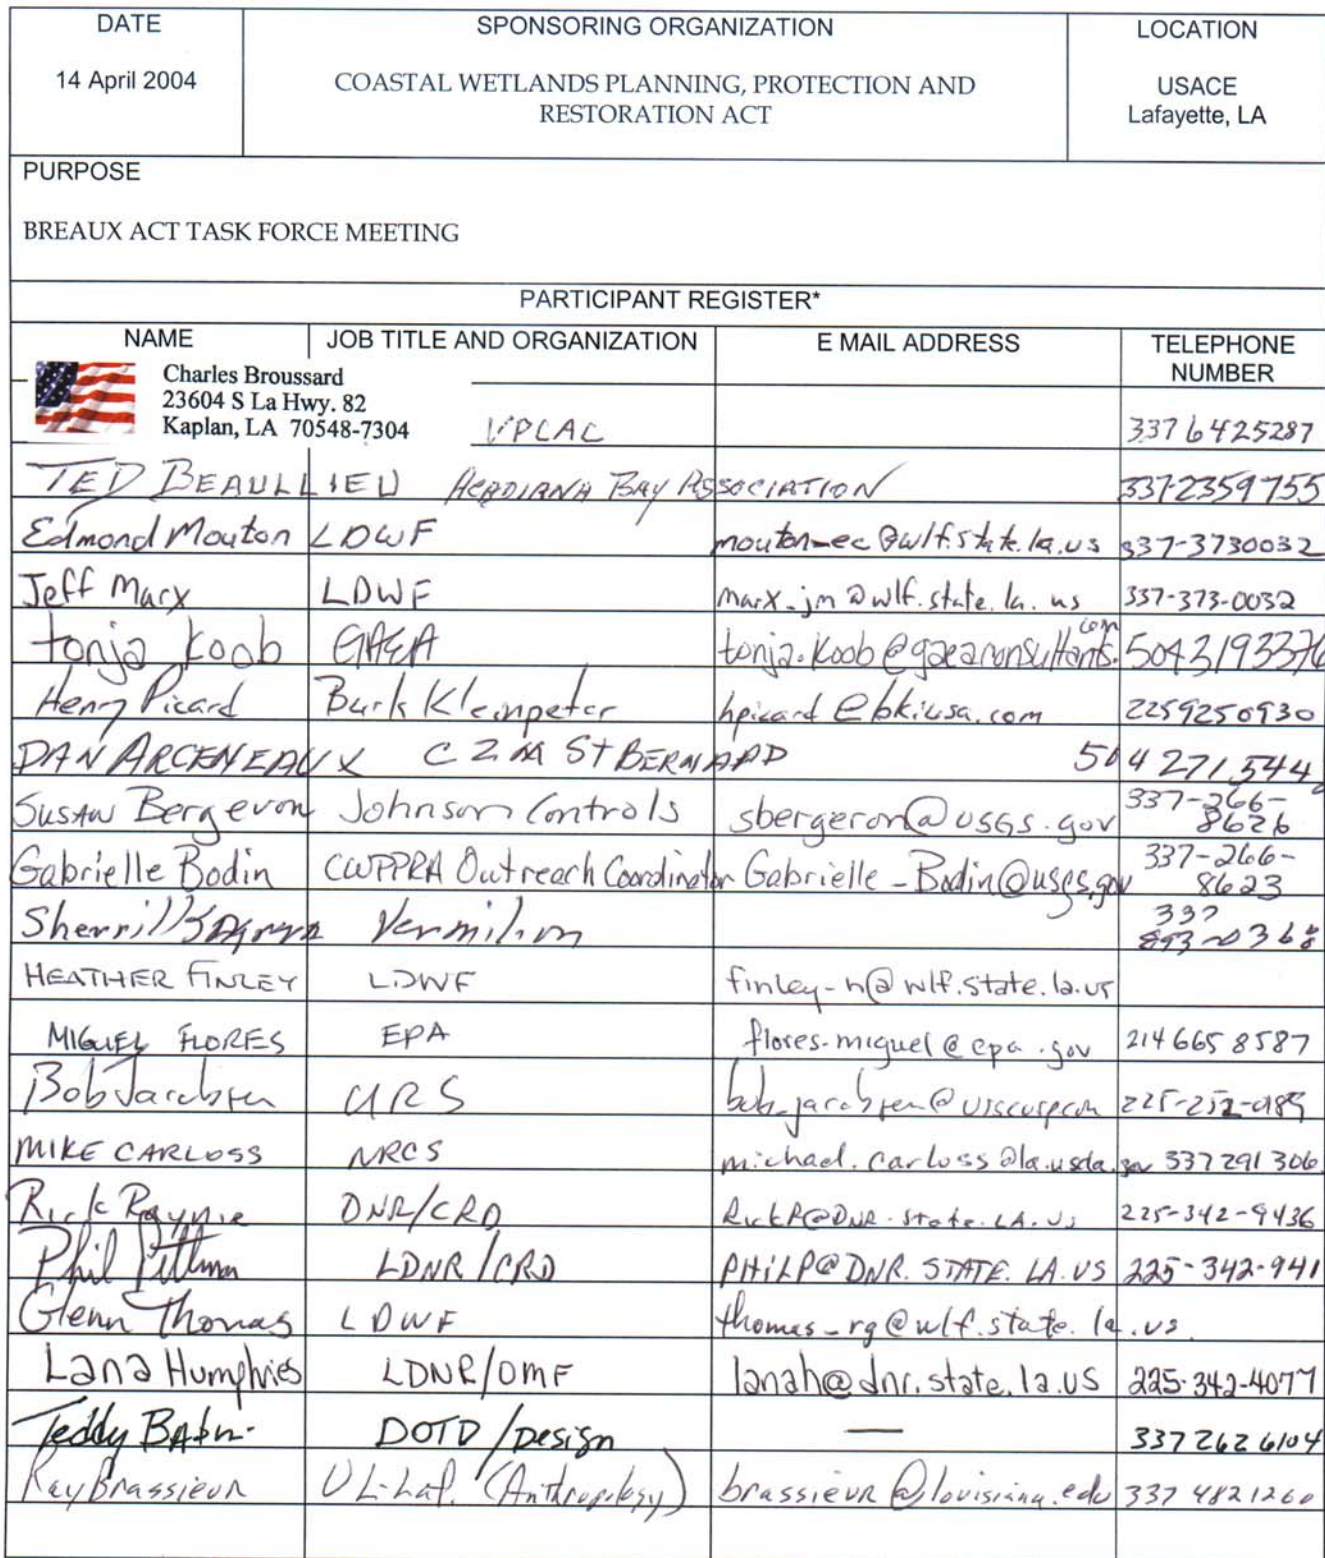 DATE SPONSORING ORGANIZATION LOCATION
14 April 2004 COASTAL WETLANDS PLANNING, PROTECTION AND RESTORATION ACT USACE Lafayette, LA
PURPOSE
BREAUX ACT TASK FORCE MEETING
PARTICIPANT REGISTER*
NAME JOB TITLE AND ORGANIZATION E MAIL ADDRESS TELEPHONE NUMBER
Charles Broussard
23604 S La Hwy. 82
Kaplan, LA 70548-7304 VPCAC 3376425287
TED BEAULLIEU ACADIANA BAY ASSOCIATION 337-2359755
Edmond Mouton LDWF mouton-ec@wlf.state.la.us 337-3730032
Jeff Marx LDWF marx-jm@wlf.state.la.us 337-373-0032
tonja koob GAEA tonja.koob@gaeaconsultants.com 5043193376
Henry Picard Burk Kleinpeter hpicard@bkiusa.com 2259250930
DAN ARCENEAUX CZM ST BERNARD 504 271 544
Susan Bergeron Johnson Controls sbergeron@usgs.gov 337-266-8626
Gabrielle Bodin CWPPRA Outreach Coordinator Gabrielle_Bodin@usgs.gov 337-266-8623
Sherrill Vermilion 337
HEATHER FINLEY LDWF finley-h@wlf.state.la.us
MIGUEL FLORES EPA flores.miguel@epa.gov 214 665 8587
Bob Jacobsen URS bob_jacobsen@urscorp.com 225-252-
MIKE CARLOSS NRCS michael.carloss@la.usda.gov 337 291 306
Rick Raynie DNR/CRD RickR@DNR.state.LA.US 225-342-9436
Phil Pittman LDNR/CRD PHILP@DNR.STATE.LA.US 225-342-941
Glenn Thomas LDWF thomas-rg@wlf.state.la.us
Lana Humphries LDNR/OMF lanah@dnr.state.la.us 225-342-4077
Teddy DOTD/Design — 337 262 6104
Ray Brassieur UL-Laf. (Anthropology) brassieur@louisiana.edu 337 4821260